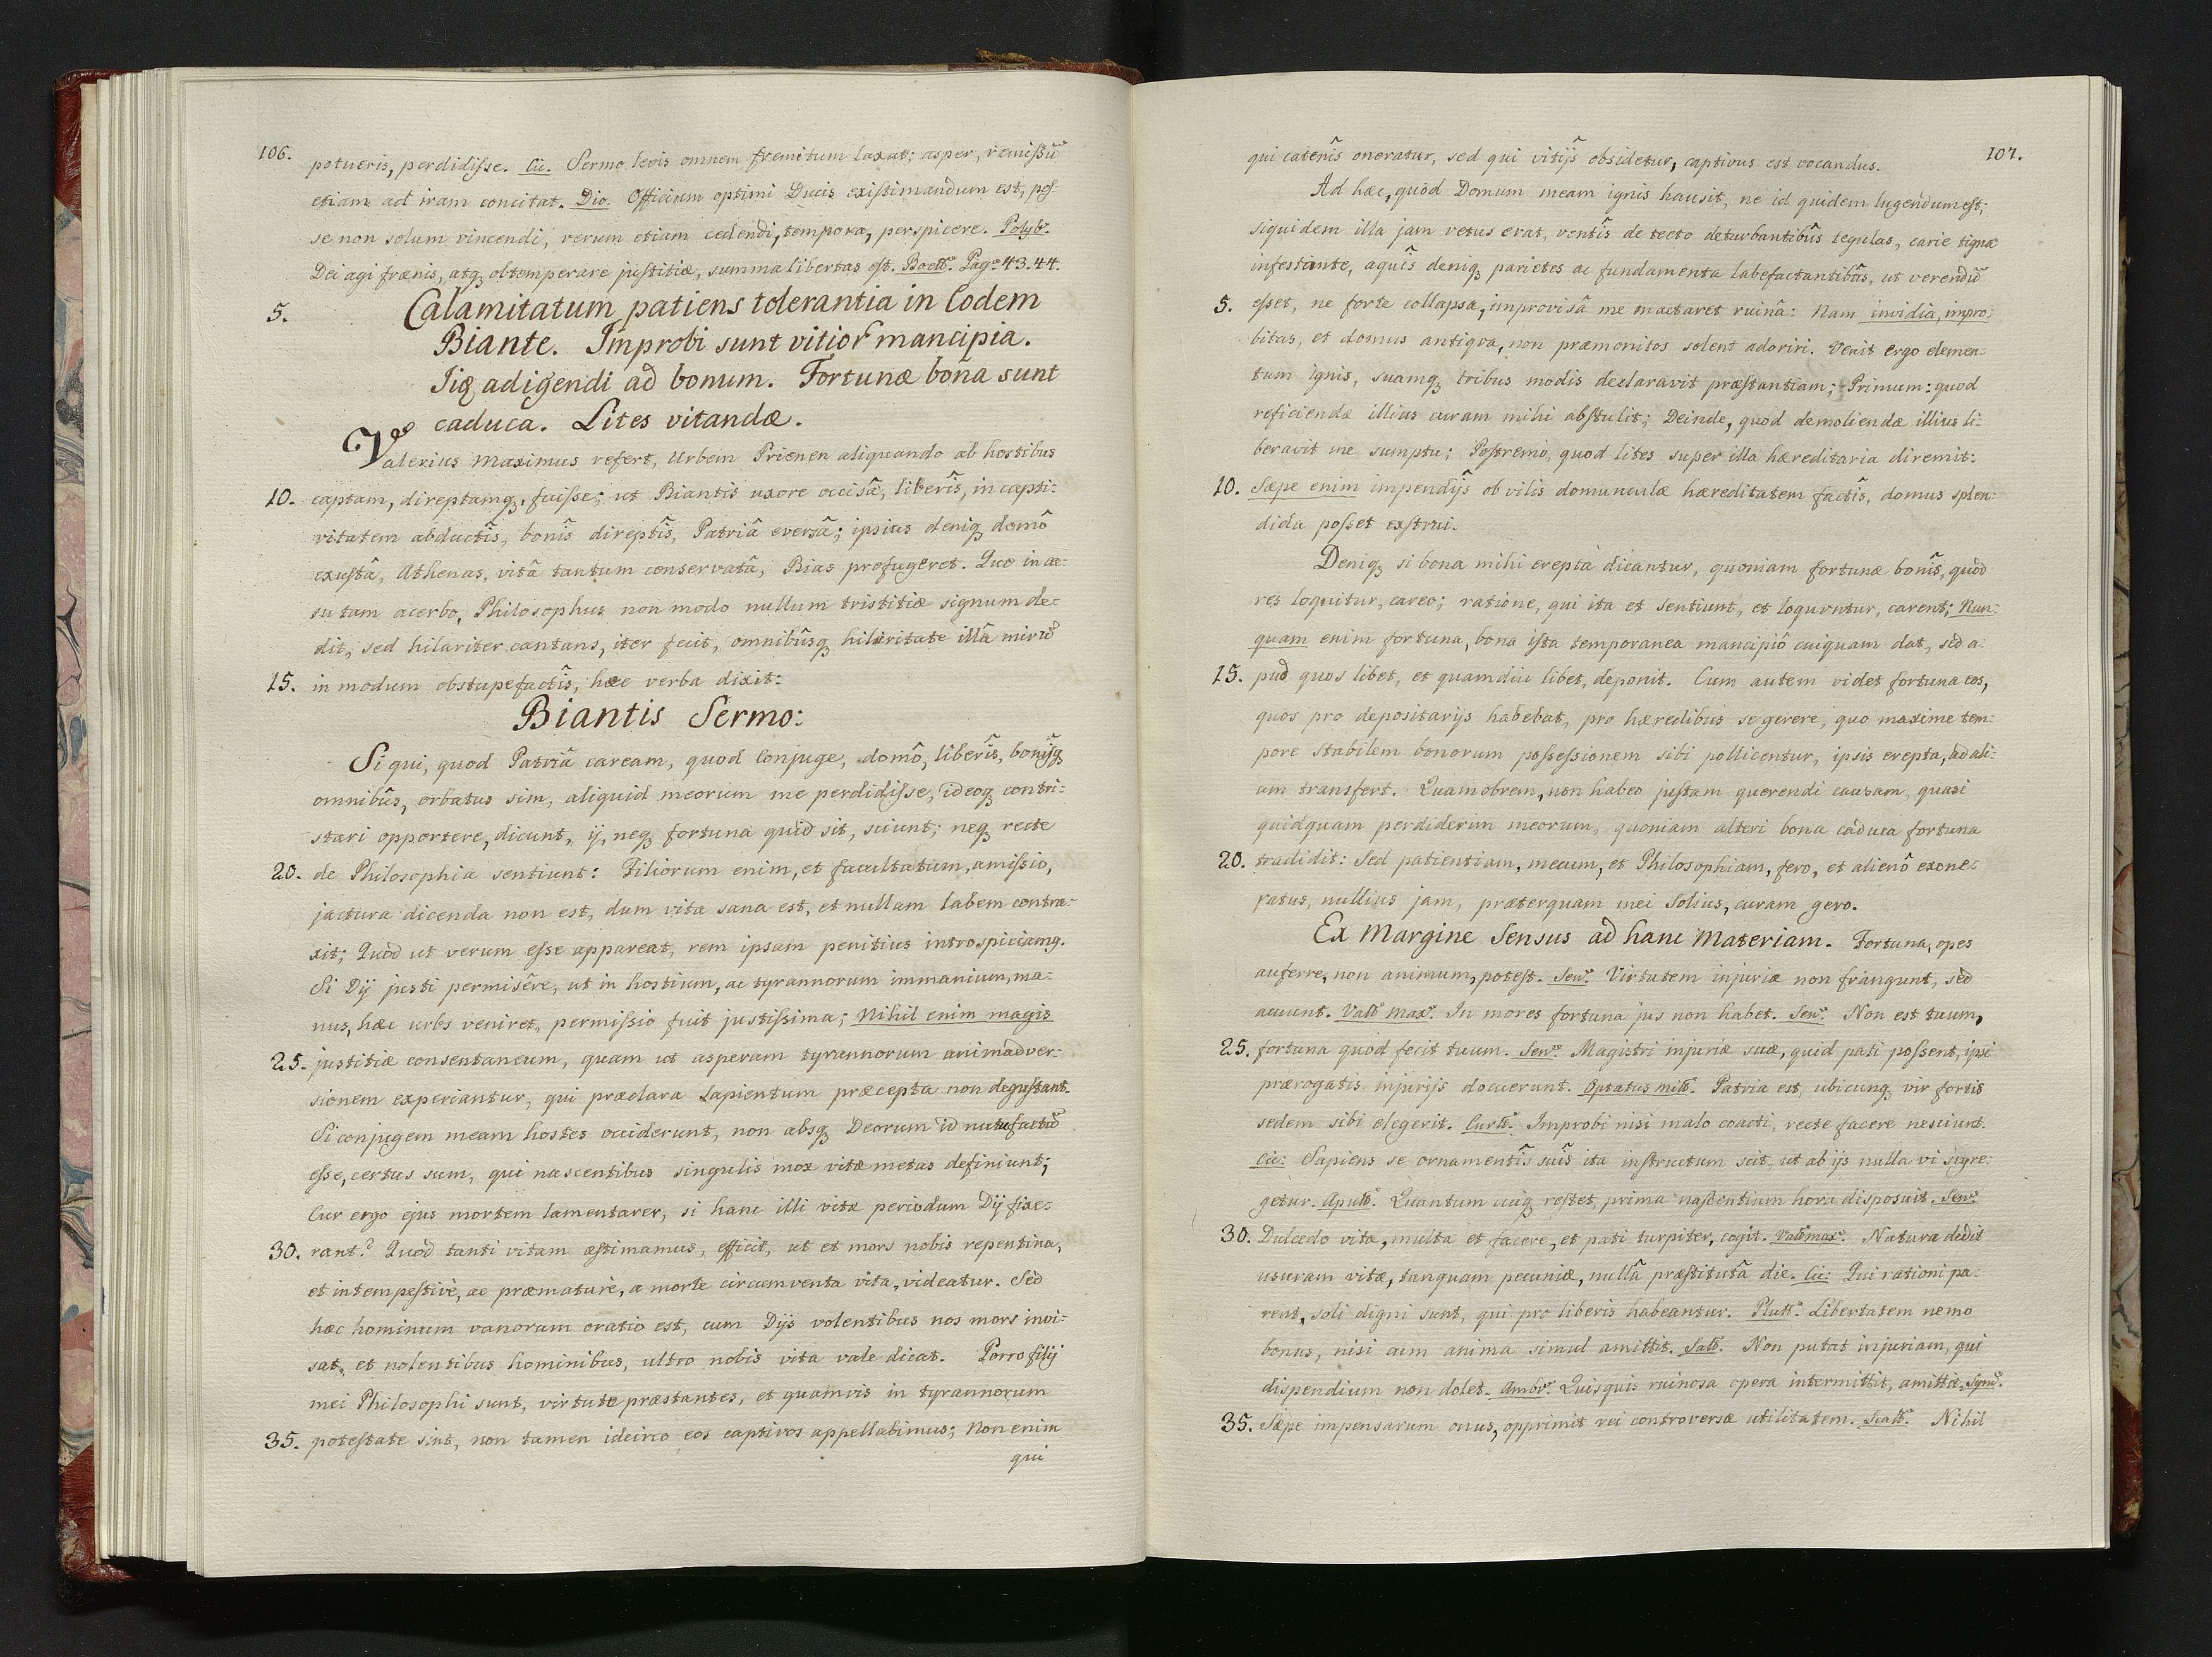 106.
potueris, perdidisse. Cic. Sermo levis omnem fremitum laxat; asper, remissũ
etiam ad iram concitat. Dio. Officium optimi Ducis existimandum est, pos-
se non solum vincendi, verum etiam cedendi, tempora, perspicere. Polyb.
Dei agi frænis, atq, obtemperare justitiæ, summa libertas est. Boett. Pag. 43.44.
5. Calamitatum patiens tolerantia in Codem
Biante. Improbi sunt vitior mancipia.
Iiq adigendi ad bonum. Fortunæ bona sunt
caduca. Lites vitandæ.
Valerius Maximus refert, Urbem Prienen aliquando ab hostibus
10. captam, direptamq, fuisse; ut Biantis uxore occisâ, liberîs, in capti-
vitatem abductîs, bonîs direptîs, Patriâ eversâ; ipsius deniq domô
exustâ, Athenas, vitâ tantum conservatâ, Bias profugeret. Quo in ca-
su tam acerbo, Philosophus non modo nullum tristitiæ signum de-
dit, sed hilariter cantans, iter fecit, omnibûsq hilaritate illâ mirũ
15. in modum obstupefactîs, hæc verba dixit:
Biantis Sermo:
Si qui, quod Patriâ caream, quod Conjuge, domô, liberîs, bonîsq
omnibûs, orbatus sim, aliquid meorum me perdidisse, ideoq contri-
stari opportere, dicunt, ij, neq fortuna quid sit, sciunt; neq recte
20. de Philosophia sentiunt: Filiorum enim, et facultatum, amissio,
jactura dicenda non est, dum vita sana est, et nullam labem contra-
xit; Quod ut verum esse appareat, rem ipsam penitius introspiciamq.
Si Dij justi permisêre, ut in hostium, ac tyrannorum immanium, ma-
nus, hæc urbs veniret, permissio fuit justissima; Nihil enim magis
25. justitiæ consentaneum, quam ut asperam tyrannorum animadver-
sionem experiantur, qui præclara Sapientum præcepta non degustant.
Si conjugem meam hostes occiderunt, non absq Deorum id nutu factũ
esse, certus sum, qui nascentibus singulis mox vitæ metas definiunt;
Cur ergo ejus mortem lamentarer, si hanc illi vitæ periodum Dij fixe-
30. rant? Quod tanti vitam æstimamus, efficit, ut et mors nobis repentina,
et intempestivè, ac præmaturè, a morte circumventa vita, videatur. Sed
hæc hominum vanorum oratio est, cum Dijs volentibus nos mors invi-
sat, et nolentibus hominibus, ultro nobis vita vale dicat. Porro filij
mei Philosophi sunt, virtute præstantes, et quamvis in tyrannorum
35. potestate sint, non tamen idcirco eos captivos appellabimus; Non enim
qui
107.
qui catenîs oneratur, sed qui vitijs obsidetur, captivus est vocandus.
Ad hæc, quod Domum meam ignis hausit, ne id quidem lugendum est;
siquidem illa jam vetus erat, ventîs de tecto deturbantibûs tegulas, carie tigna
infestante, aquîs deniq parietes ac fundamenta labefactantibûs, ut verendũ
5. esset, ne forte collapsa, improvisâ me mactaret ruinâ: Nam invidia, impro-
bitas, et domus antiqua, non præmonitos solent adoriri. Venit ergo elemen-
tum ignis, suamq tribus modis declaravit præstantiam; Primum: quod
reficiendæ illius curam mihi abstulit; Deinde, quod demoliendæ illius li-
beravit me sumptu; Postremò, quod lites super illa hæreditaria diremit:
10. Sæpe enim impendijs ob vilis domunculæ hæreditatem factîs, domus splen-
dida posset exstrui.
Deniq si bona mihi erepta dicantur, quoniam fortunæ bonîs, quod
res loquitur, careo; ratione, qui ita et sentiunt, et loquntur, carent; Nun-
quam enim fortuna, bona ista temporanea mancipiô cuiquam dat, sed a-
15. pud quos libet, et quamdiu libet, deponit. Cum autem videt fortuna eos,
quos pro depositarijs habebat, pro hæredibus se gerere, quo maxime tem-
pore stabilem bonorum possessionem sibi pollicentur, ipsis erepta, ad ali-
um transfert. Quamobrem, non habeo justam querendi causam, quasi
quidquam perdiderim meorum, quoniam alteri bona caduca fortuna
20. tradidit: Sed patientiam, mecum, et Philosophiam, fero, et alienô exone-
ratus, nullius jam, præterquam mei Solius, curam gero.
Ex Margine Sensus ad hanc Materiam. Fortuna, opes
auferre, non animum, potest. Sen. Virtutem injuriæ non frangunt, sed
acuunt. Vall. Max. In mores fortuna jus non habet. Sen. Non est tuum,
25. fortuna quod fecit tuum. Sen. Magistri injuriæ suæ, quid pati possent, ipsi
prærogatis injurijs docuerunt. Optatus mill. Patria est, ubicunq vir fortis
sedem sibi elegerit. Curtt. Improbi nisi malo coacti, recte facere nesciunt.
Cic: Sapiens se ornamentîs suîs ita instructum scit, ut ab ijs nulla vi segre-
getur. Apull. Quantum cuiq restet, prima nascentium hora disposuit. Sen.
30. Dulcedo vitæ, multa et facere, et pati turpiter, cogit. Vall max. Natura dedit
usuram vitæ, tanquam pecuniæ, nullâ præstitutâ die. Cic: Qui rationi pa-
rent, soli digni sunt, qui pro liberis habeantur. Plutt. Libertatem nemo
bonus, nisi cum anima simul amittit. Sall. Non putat injuriam, qui
dispendium non dolet. Ambr. Quisquis ruinosa opera intermittit, amittit. Symm.
35. Sæpe impensarum onus, opprimit rei controversæ utilitatem. Scall. Nihil